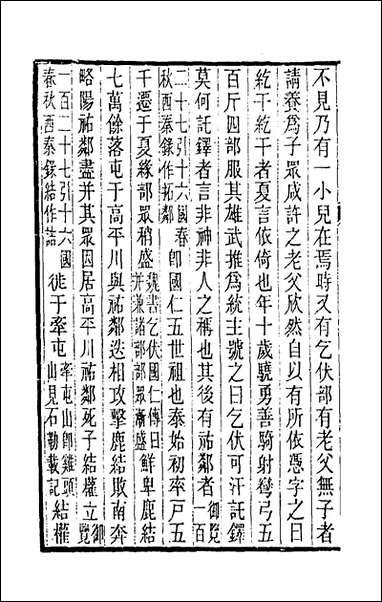 不見乃有一小兒在焉時又有乞伏部有老父無子者
請養爲子眾咸許之老父欣然自以有所依憑字之曰
紇干紇干者夏言依倚也年十歲驍勇善騎射彎弓五
百斤四部服其雄武推爲統主號之曰乞伏可汗託鐸
莫何託鐸者言非神非人之稱也其後有祐鄰者御覽一百
二十七引十六國春秋西秦錄作拓鄰即國仁五世祖也泰始初率戶五
千遷于夏緣部眾稍盛魏書乞伏國仁傳曰并兼諸部部眾漸盛鮮卑鹿結
七萬餘落屯于高平川與祐鄰迭相攻擊鹿結敗南奔
略陽祐鄰盡并其眾因居高平川祐鄰死子結權立御覽
一百二十七引十六國春秋西秦錄結作詰徙于牽屯牽屯山即雞頭山見石勒載記結權